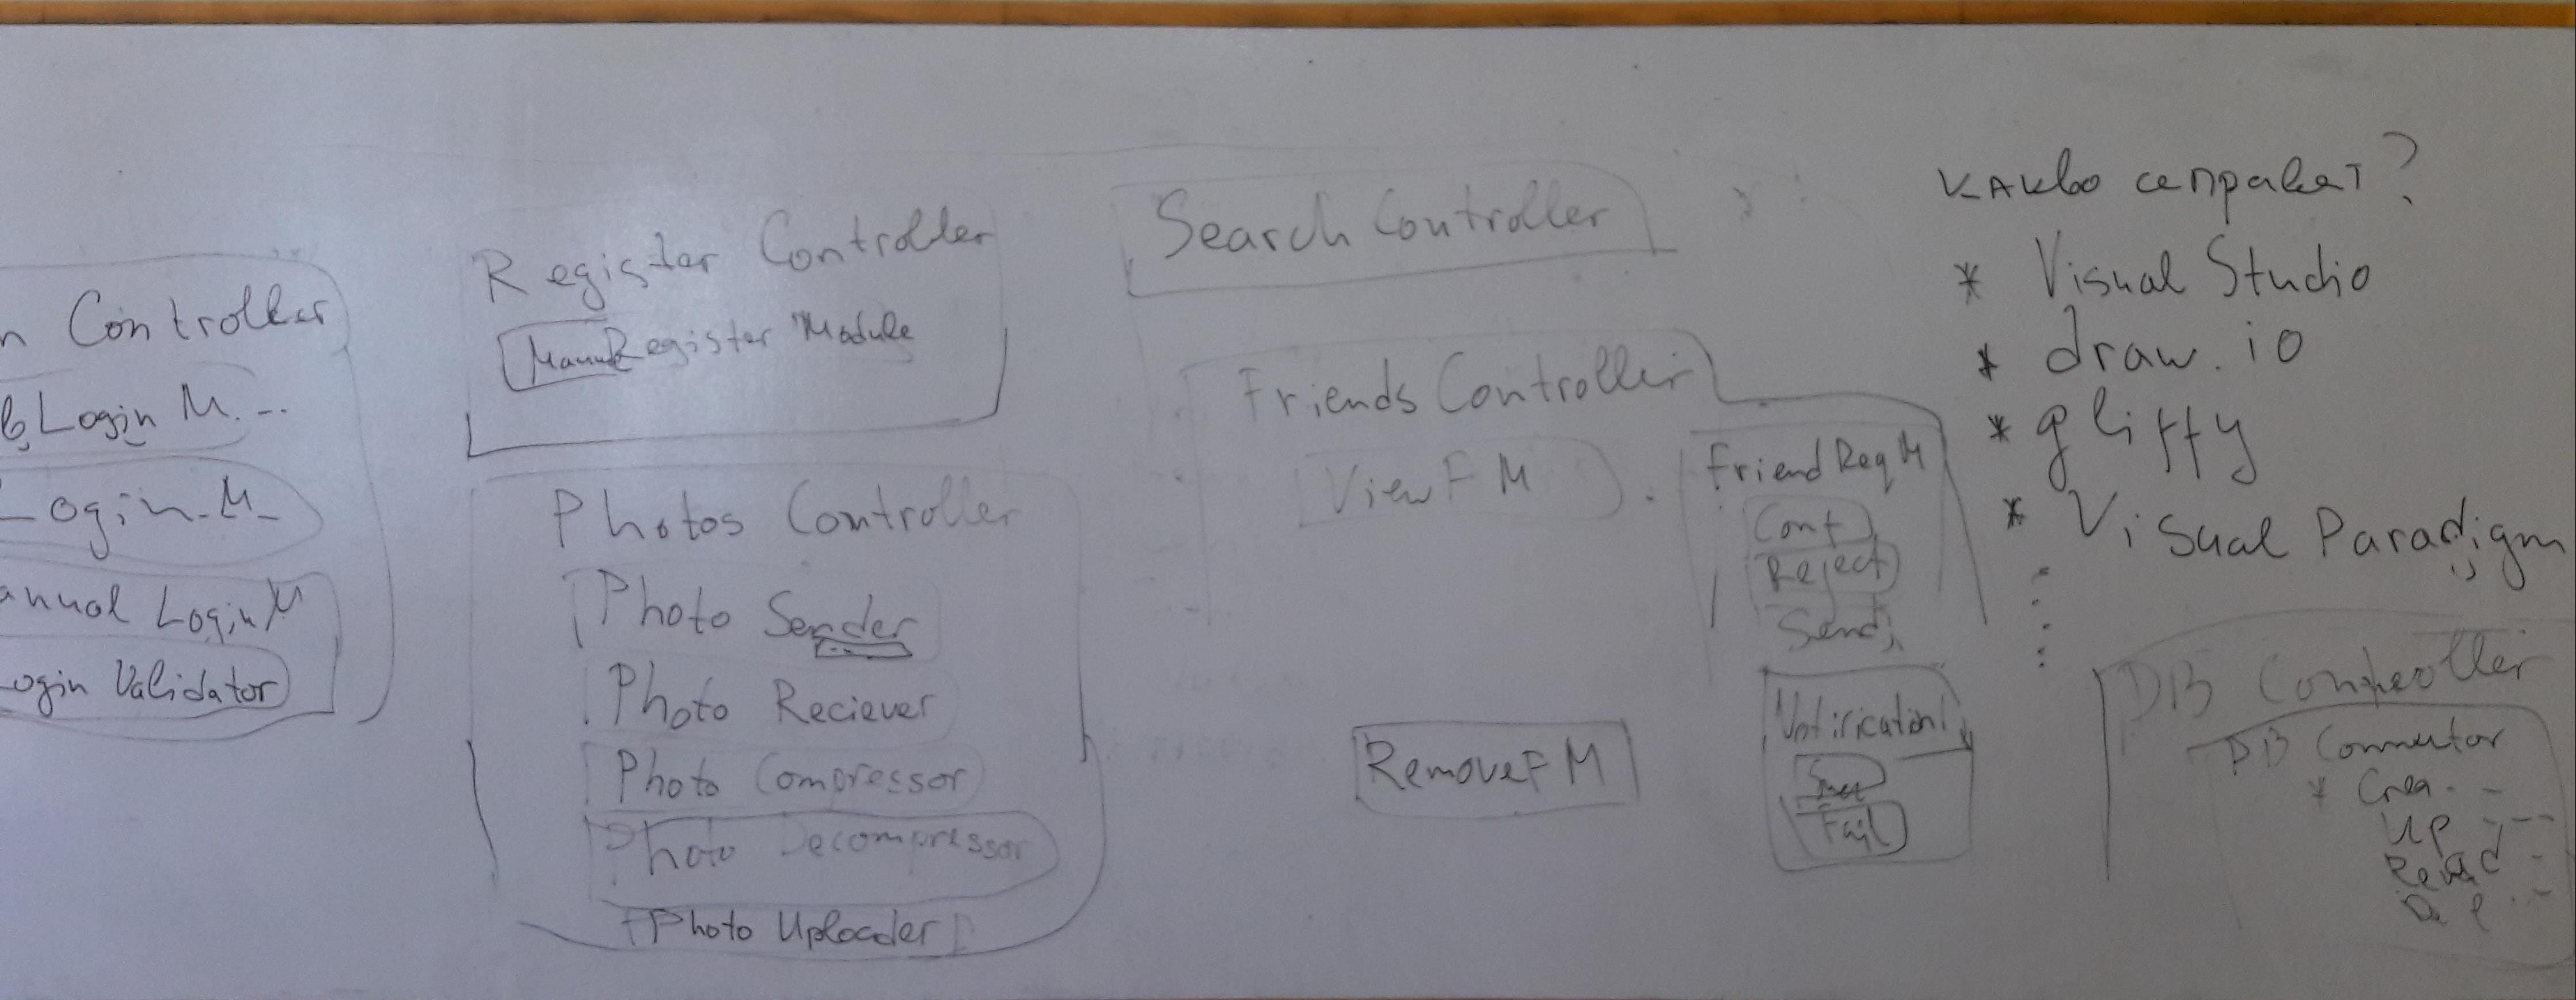 n Controller
b Login M...
Login M
anual Login M
ogin Validator
Register Controller
Register Module
Photos Controller
Photo Sender
Photo Reciever
Photo Compressor
Photo Decompressor
Photo Uploader
Search Controller
Friends Controller
ViewF M
RemoveF M
FriendReq M
Conf
Reject
Send
Notification
Fail
какво сеправат?
* Visual Studio
* draw.io
* gliffy
* Visual Paradigm
DB Controller
DB Connector
* Crea...
Up---
Read -